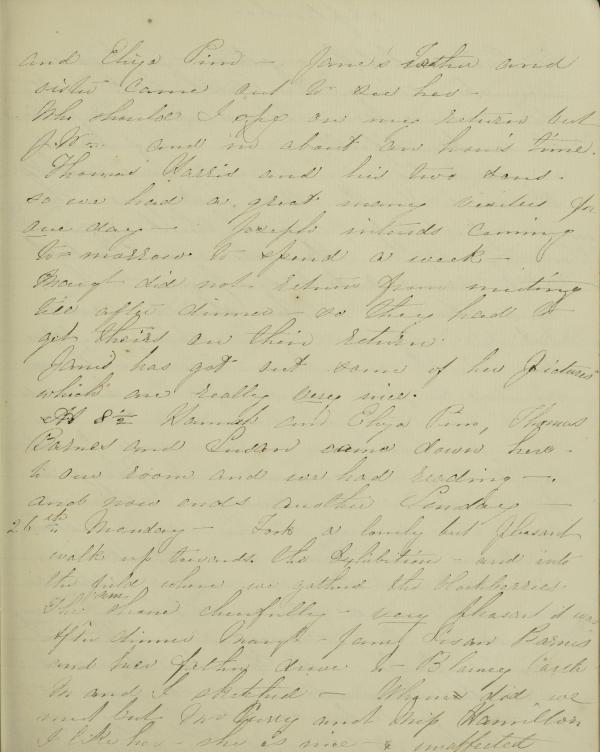 and Eliza Pim - Jane's father and
sister came out to see her -
Who should I spy on my return but
J.W - and in about an hour's time.
Thomas Harris and his two sons.
so we had a great many visitors for
one day - Joseph intends coming
to-morrow to spend a week -
Margt did not return from meeting
till after dinner - so they had to
get theirs on their return.
Jane has got out some of her pictures
which are really very nice.
At 8½ Hannah and Eliza Pim, Thomas
Barnes and Susan came down here
to our room and we had reading -
and now ends another Sunday -
26th Monday - Took a lonely but pleasant
walk up towards the Exhibition - and into
the field where we gathered the blackberries.
The shone cheerfully - very pleasant it was
After dinner Margt - Jane, Susan Barnes
and her father drove to Blarney Castle
M and I sketched - Whom did we
meet but Mrs and Miss Hamilton
I like her - she is nice - & unaffected